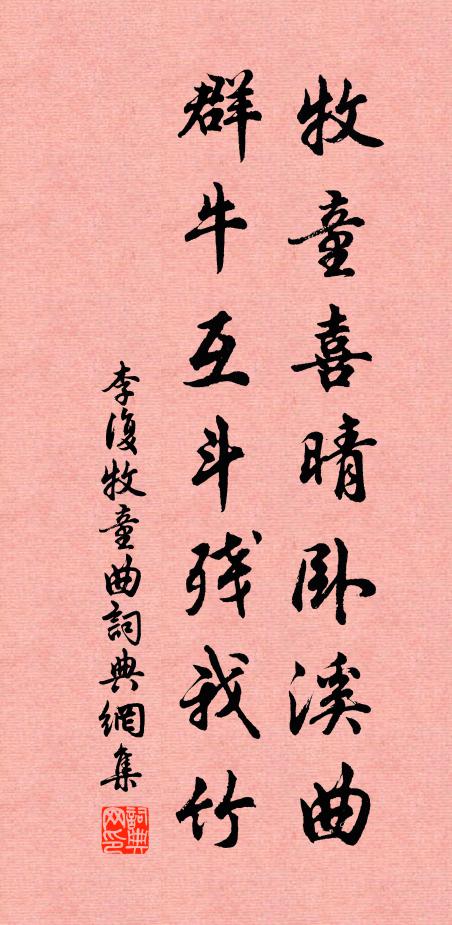 牧童喜晴卧溪曲
群牛互斗残我竹
李復牧童曲詞典網集
詞典
网印